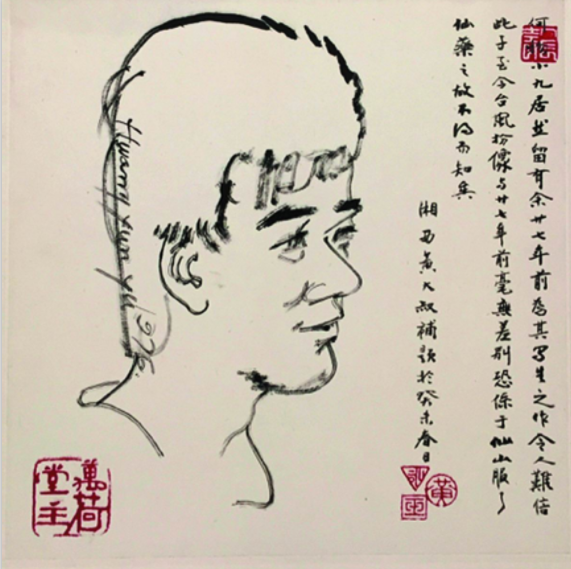 小九居然留有余廿七年前為其写生之作令人難信
此子至今台風扮像与廿七年前毫無差別恐係于仙山服了
仙藥之故不得而知矣
湘西黄大叔補題於癸未春日
黄
Hwang Yun Yu 1976.
萬荷
堂主